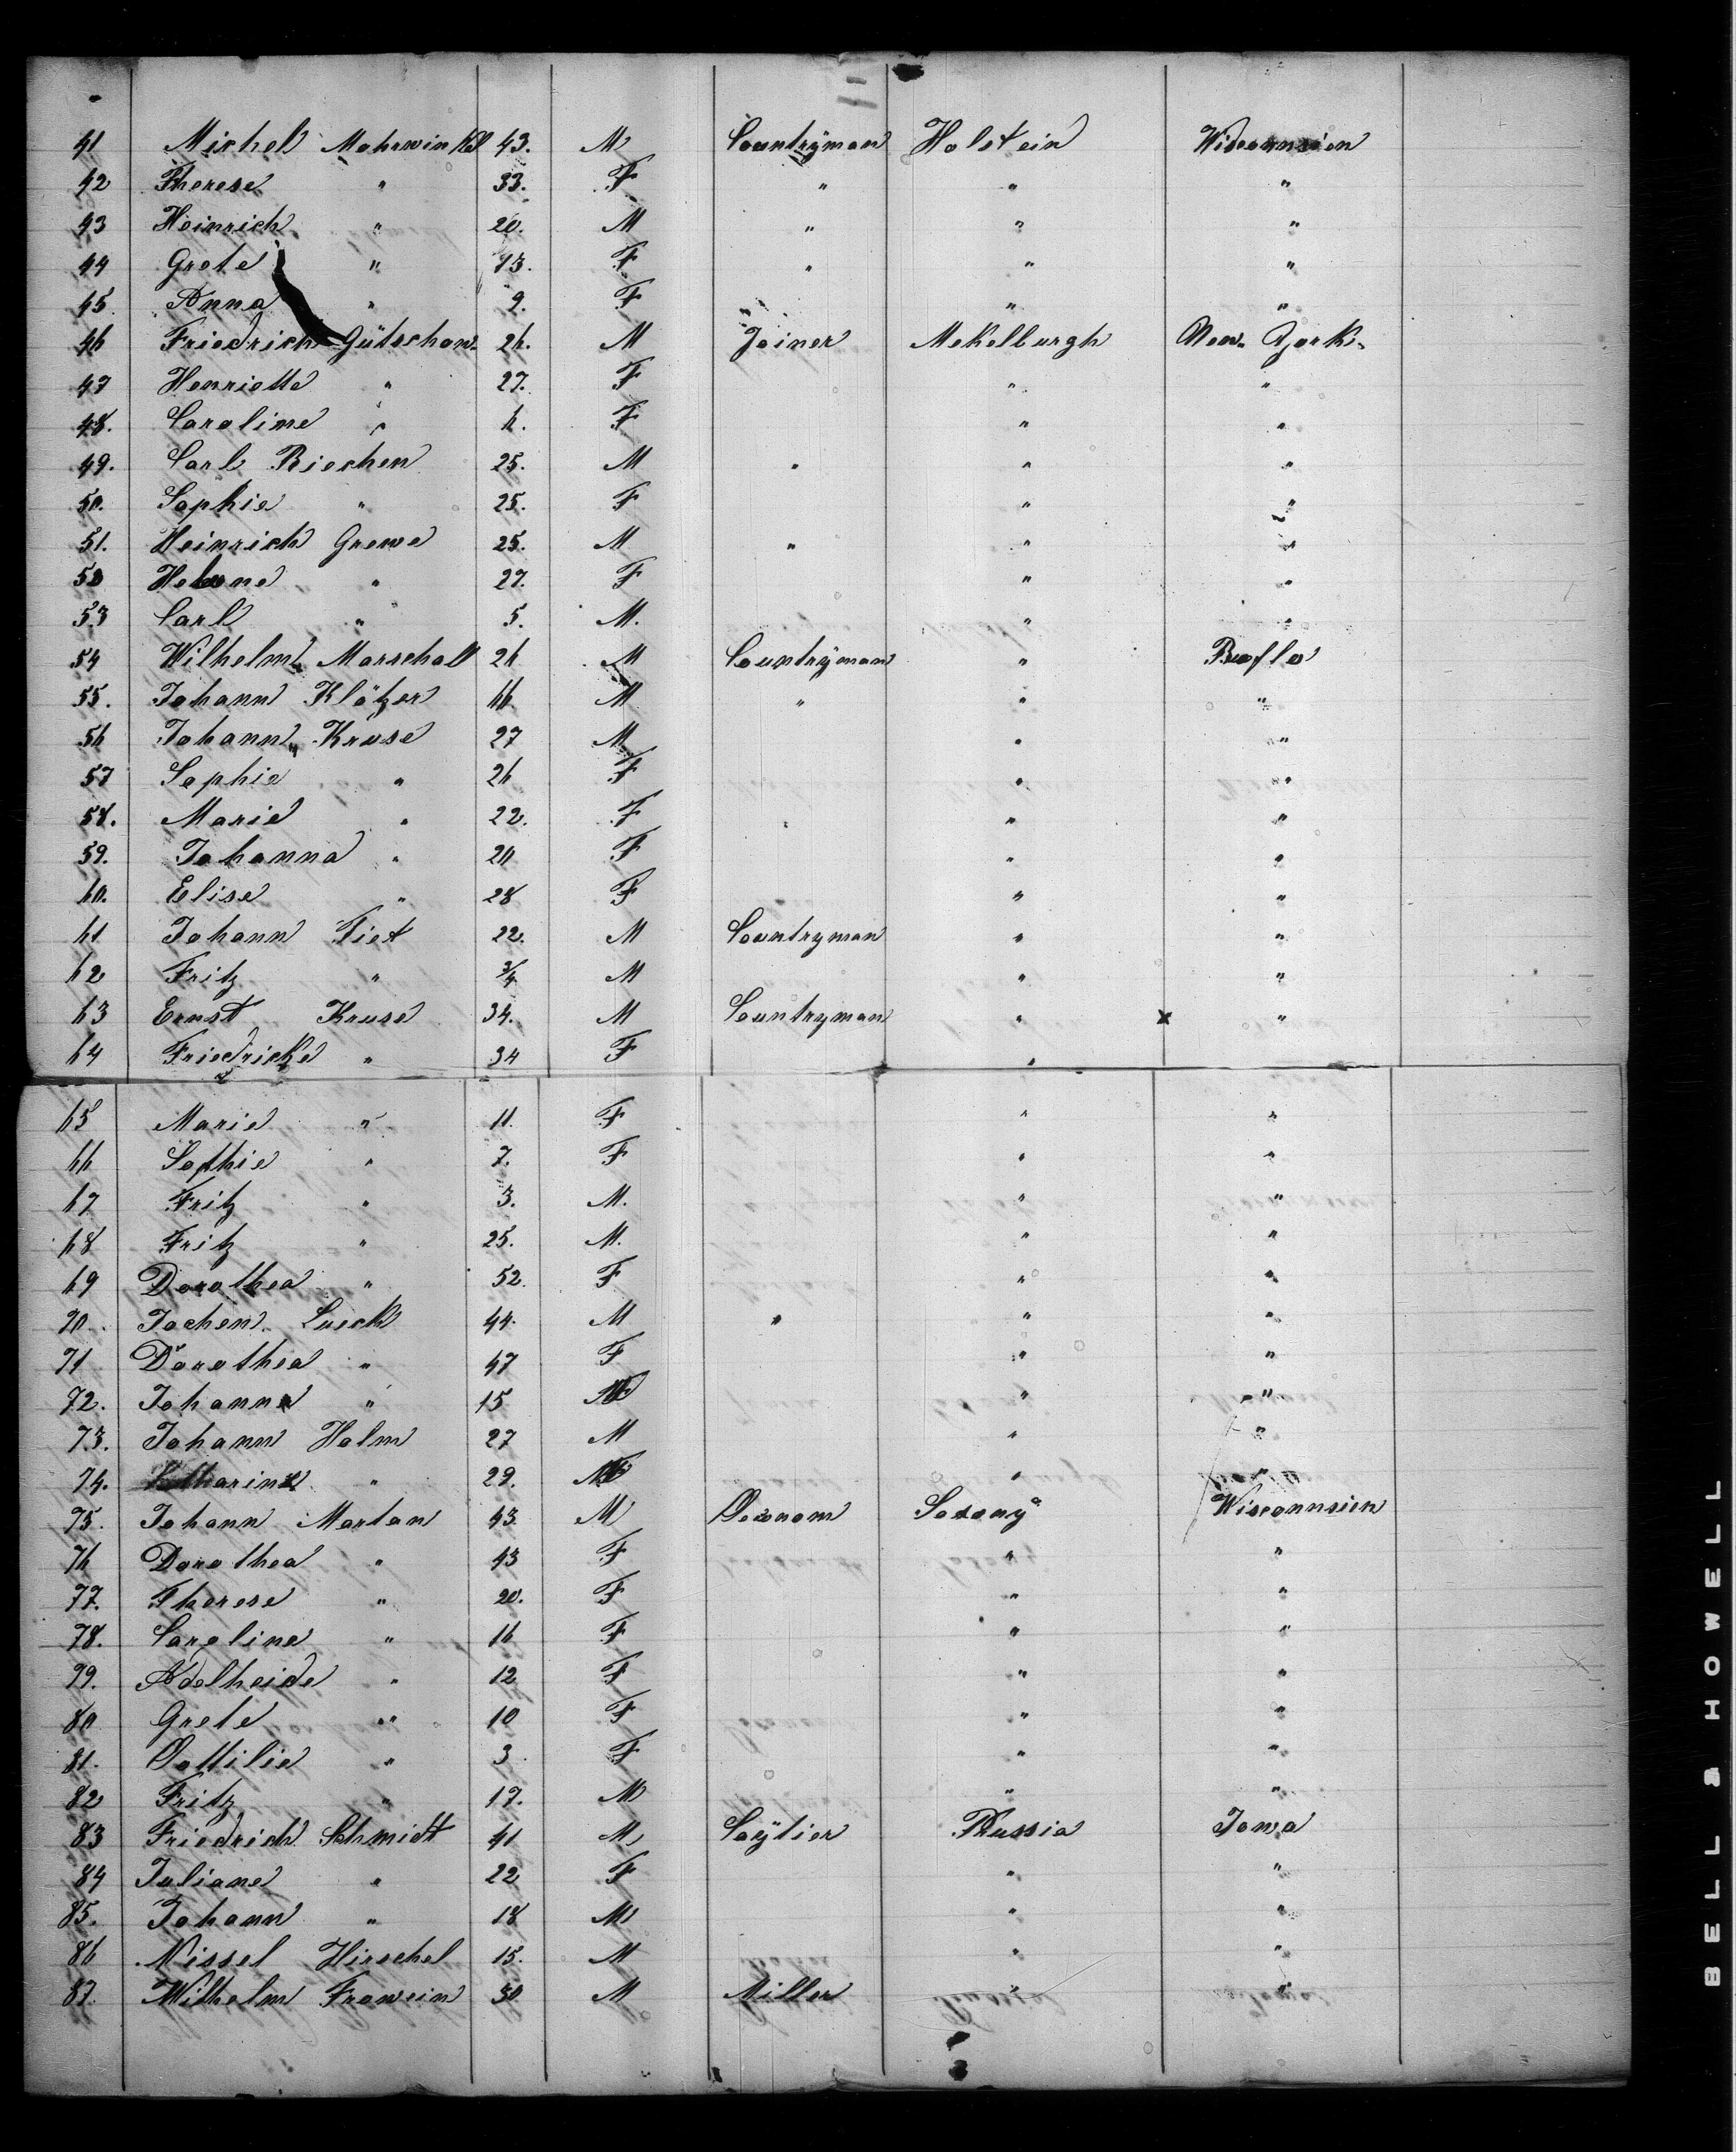 41 Michel Mohrwinkel 43. M Countrÿman Holstein Wisconnsien
42 Therese " 33. F " " "
43 Heinrich " 20. M " " "
44 Grete " 13. F " " "
45. Anna " 9. F " "
46 Friedrich Gütschow. 26. M Joiner Mekelburgh New. York.
47 Henriette " 27. F " "
48. Caroline " 6. F " "
49. Carl Riechen 25. M " " "
50. Sophie " 25. F " "
51. Heinrich Grewe 25. M " " "
52 Helene " 27. F " "
53 Carl " 5. M. " "
54 Wilhelm Marschall 26 M Countrÿman " Buflo
55. Johann Klötzer 66. M " " "
56 Johann Kruse 27 M " "
57 Sophie " 26 F " "
58. Marie " 22. F " "
59. Johanna " 20 F " "
60. Elise " 28 F " "
61 Johann Tiet 22. M Countryman " "
62 Fritz " 3/4 M " "
63 Ernst Kruse 34. M Countryman " x "
64 Friedricke " 34 F "
65 Marie " 11. F " "
66 Sophie " 7. F " "
67 Fritz " 3. M. " "
68 Fritz " 25. M. " "
69 Dorothea " 52. F " "
70. Jochen. Lueck 44. M " " "
71 Dorothea " 47 F " "
72. Johann " 15 M " "
73. Johann Holm 27 M " "
74. Catharine " 29. " "
75. Johann Martan 43. M Oeconom Saxony Wisconnsien
76 Dorothea " 43 F " "
77. Therese " 20. F " "
78. Caroline " 16 F " "
79. Adelheide " 12 F " "
80 Grete " 10 F " "
81. Oottilie " 3. F " "
82 Fritz " 17. M " "
83 Friedrich Schmidt 41 M Prussia Iowa
84 Juliane " 22 F " "
85. Johann " 18 M " "
86 Nissel Hirschel 15. M " "
87. Wilhelm Frowein 30 M Miller " "
BELL & HOWELL